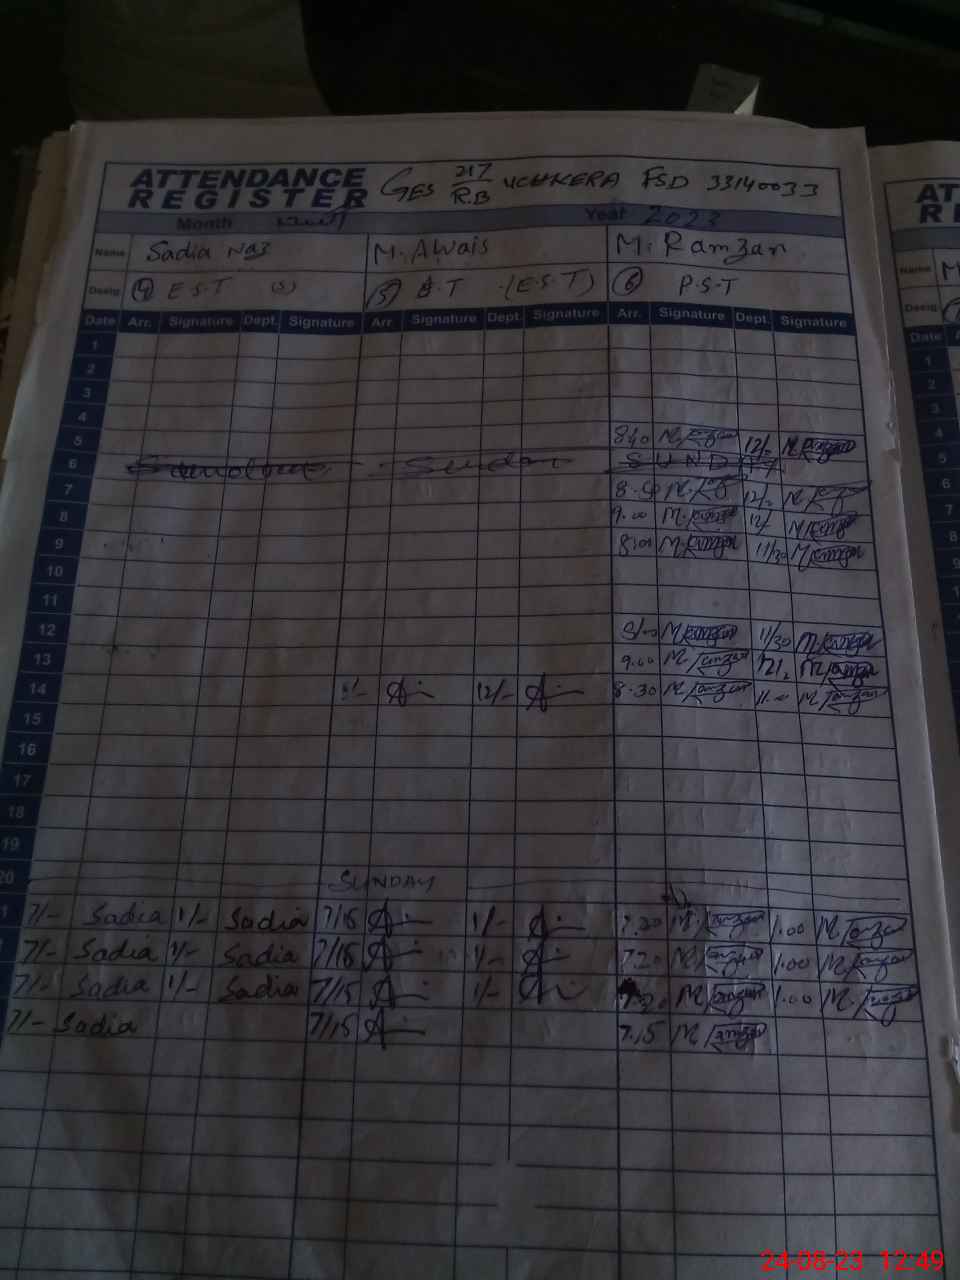 ATTENDANCE REGISTER GES 217/R.B UCHKERA FSD 33140033
Month اگست Year 2023
Name Sadia Naz M. Awais M. Ramzan
Desig ④ E.S.T (S) ⑤ E.T (E.S.T) ⑥ P.S.T
Date Arr. Signature Dept. Signature Arr Signature Dept. Signature Arr. Signature Dept. Signature
1
2
3
4
5 8:40 M. Ramzan 12/- M Ramzan
6 Sunday Sunday SUNDAY
7 12/-
8 9.00 M. Ramzan 12/- M Ramzan
9 M. Ramzan 11/30 M Ramzan
10
11
12 M Ramzan 11/30 M Ramzan
13 9.00 M Ramzan M Ramzan
14 12/- 8.30 M Ramzan 11.00 M Ramzan
15
16
17
18
19
20 SUNDAY
7/- Sadia 1/- Sadia 7/15 1/- 7.20 M. Ramzan 1.00 M Ramzan
7/- Sadia 1/- Sadia 7/15 1/- 7.20 M Ramzan 1.00 M Ramzan
7/- Sadia 1/- Sadia 7/15 1/- M Ramzan 1.00 M. Ramzan
7/- Sadia 7/15 7.15 M Ramzan
AT
RE
Name M
Desig
Date
1
2
3
4
5
6
7
8
24-08-23 12:49